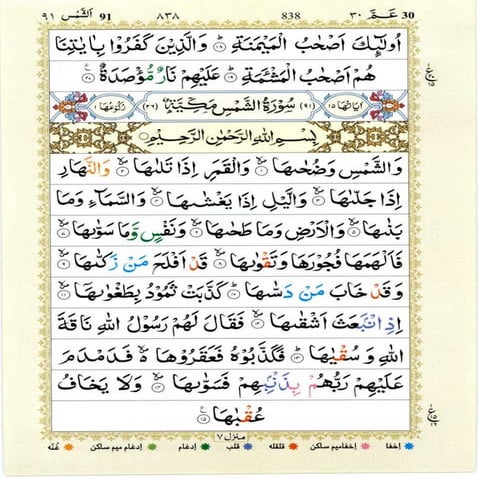 ٩١ اَلشَّمۡس 91 ٨٣٨ 838 عَمَّ ٣٠ 30
اُولٰٓئِكَ اَصۡحٰبُ الۡمَيۡمَنَةِ ﴿١٨﴾ وَالَّذِيۡنَ كَفَرُوۡا بِاٰيٰتِنَا
هُمۡ اَصۡحٰبُ الۡمَشۡـَٔمَةِ ﴿١٩﴾ عَلَيۡهِمۡ نَارٌ مُّؤۡصَدَةٌ ﴿٢٠﴾
اٰيَاتُهَا ١٥ (٩١) سُوۡرَةُ الشَّمۡسِ مَكِّيَّةٌ (٢٦) رُكُوۡعُهَا ١
بِسۡمِ اللّٰهِ الرَّحۡمٰنِ الرَّحِيۡمِ
وَالشَّمۡسِ وَضُحٰٮهَا ﴿١﴾ وَالۡقَمَرِ اِذَا تَلٰٮهَا ﴿٢﴾ وَالنَّهَارِ
اِذَا جَلّٰٮهَا ﴿٣﴾ وَالَّيۡلِ اِذَا يَغۡشٰٮهَا ﴿٤﴾ وَالسَّمَآءِ وَمَا
بَنٰٮهَا ﴿٥﴾ وَالۡاَرۡضِ وَمَا طَحٰٮهَا ﴿٦﴾ وَنَفۡسٍ وَّمَا سَوّٰٮهَا ﴿٧﴾
فَاَلۡهَمَهَا فُجُوۡرَهَا وَتَقۡوٰٮهَا ﴿٨﴾ قَدۡ اَفۡلَحَ مَنۡ زَكّٰٮهَا ﴿٩﴾
وَقَدۡ خَابَ مَنۡ دَسّٰٮهَا ﴿١٠﴾ كَذَّبَتۡ ثَمُوۡدُ بِطَغۡوٰٮهَا ﴿١١﴾
اِذِ انۡۢبَعَثَ اَشۡقٰٮهَا ﴿١٢﴾ فَقَالَ لَهُمۡ رَسُوۡلُ اللّٰهِ نَاقَةَ
اللّٰهِ وَسُقۡيٰهَا ﴿١٣﴾ فَكَذَّبُوۡهُ فَعَقَرُوۡهَا فَدَمۡدَمَ
عَلَيۡهِمۡ رَبُّهُمۡ بِذَنۡۢبِهِمۡ فَسَوّٰٮهَا ﴿١٤﴾ وَلَا يَخَافُ
عُقۡبٰهَا ﴿١٥﴾
منزل ٧
اِخفا اِخفامیم ساکن قلقله قلب اِدغام اِدغام میم ساکن غُنّه